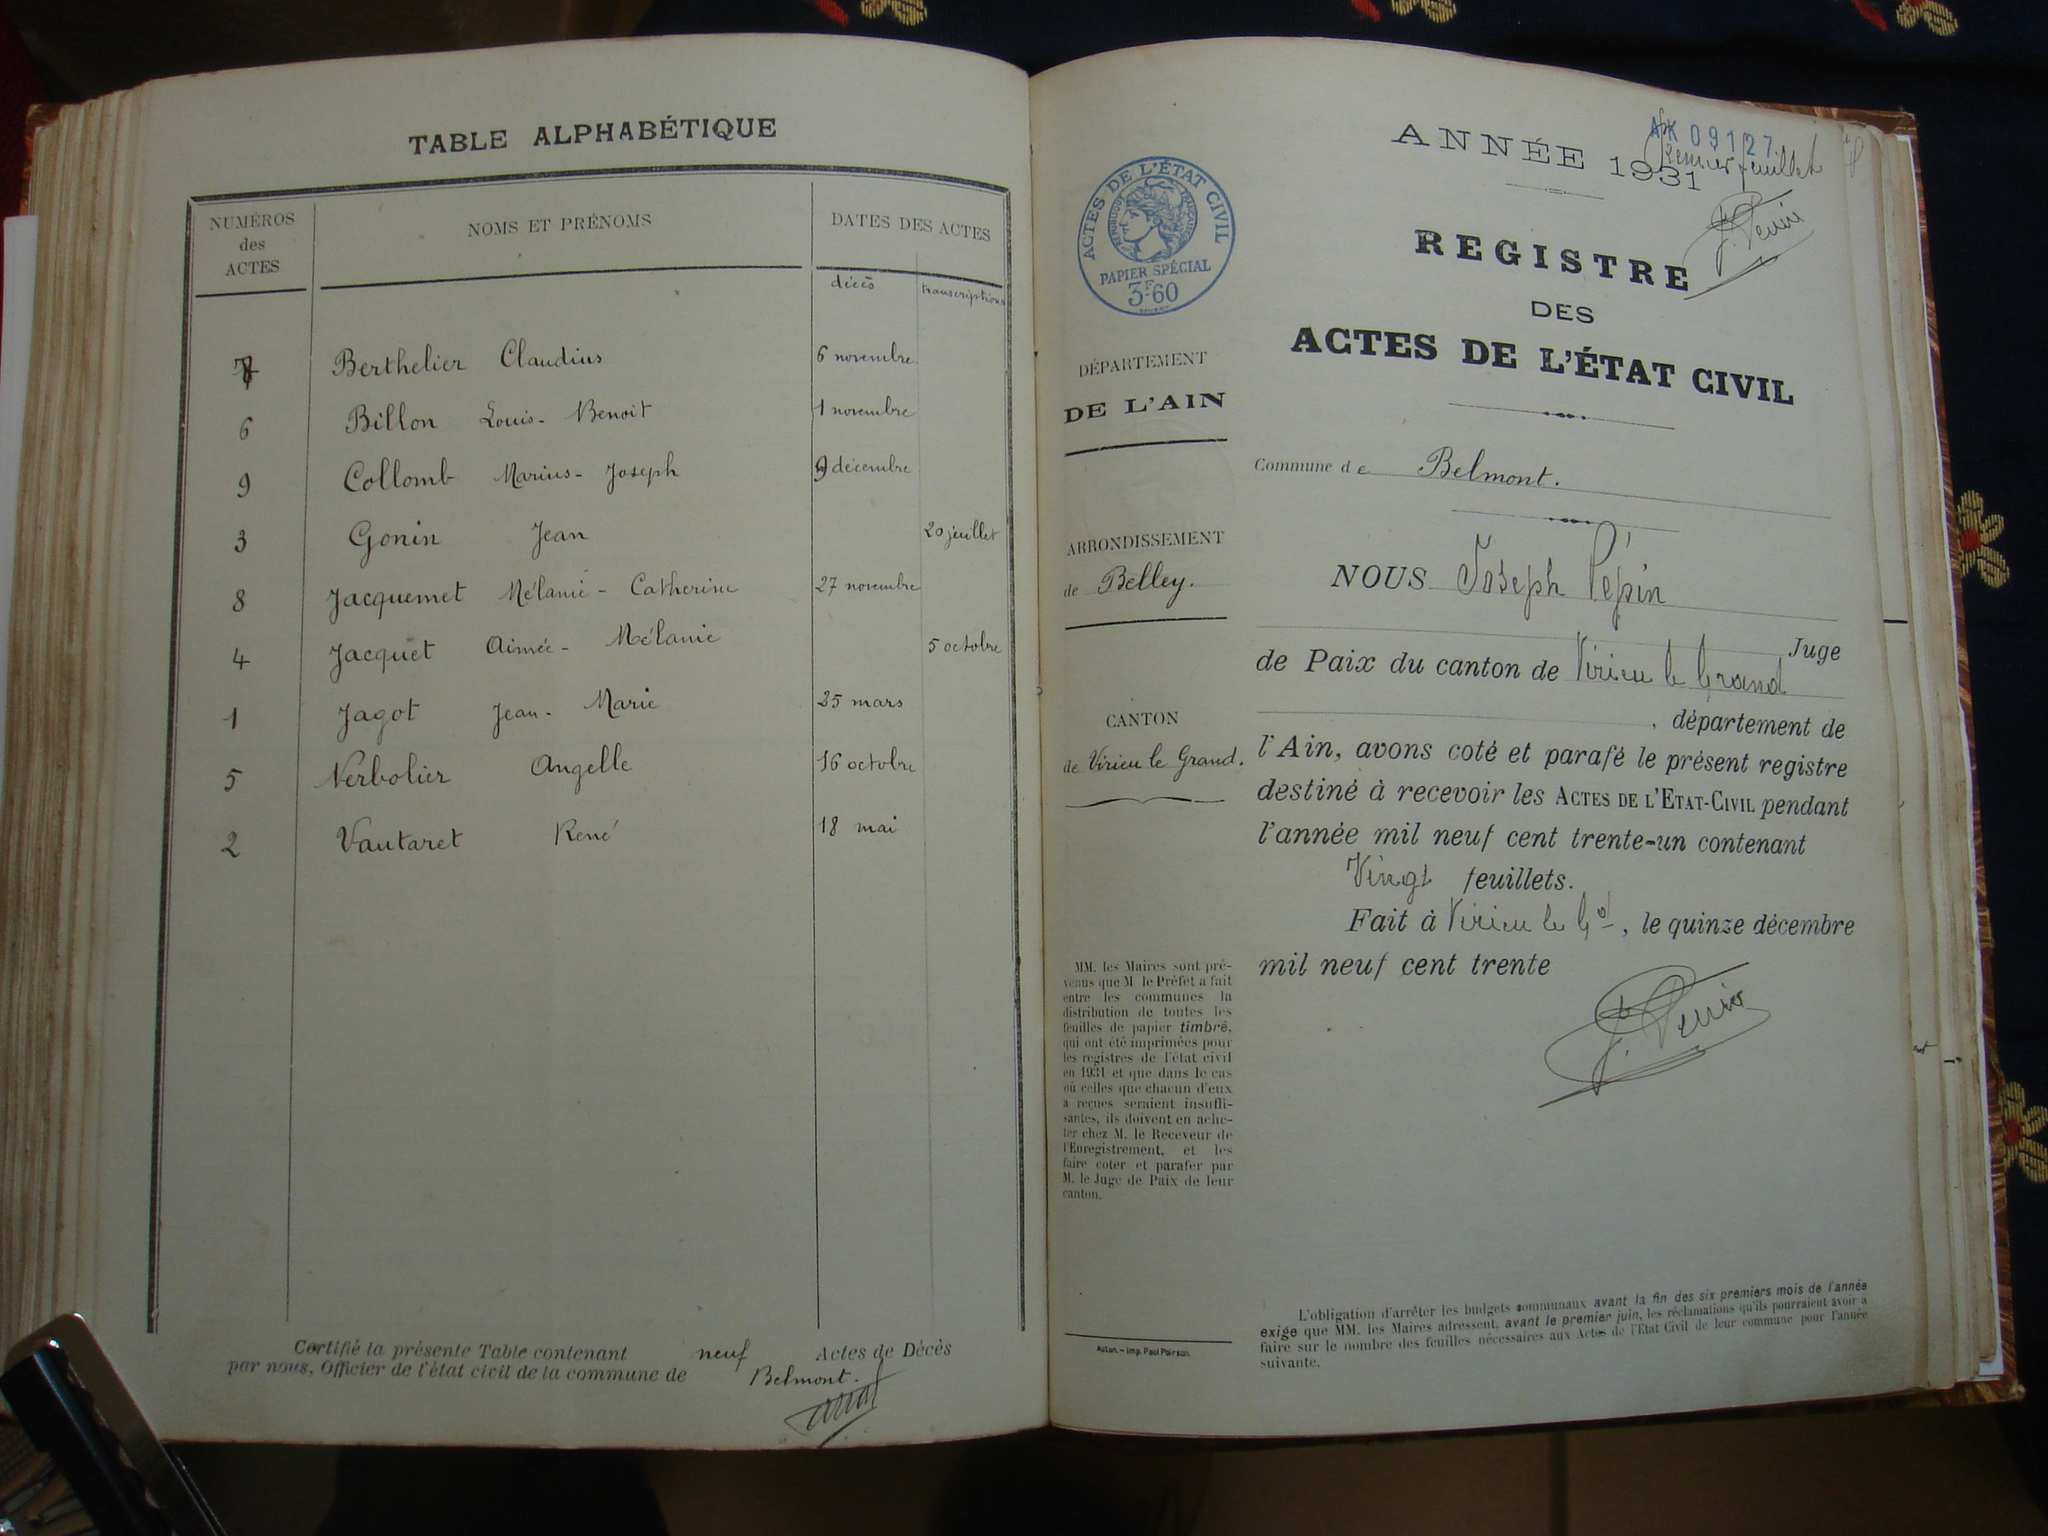 TABLE ALPHABÉTIQUE
NUMÉROS des ACTES NOMS ET PRÉNOMS DATES DES ACTES
décès transcriptions
7 Berthelier Claudius 6 novembre
6 Billon Louis-Benoit 1 novembre
9 Collomb Marius-Joseph 9 décembre
3 Gonin Jean 20 juillet
8 Jacquemet Mélanie-Catherine 27 novembre
4 Jacquet Aimée-Mélanie 5 octobre
1 Jagot Jean-Marie 25 mars
5 Nerbolier Angelle 16 octobre
2 Vautaret René 18 mai
Certifié la présente Table contenant neuf Actes de Décès
par nous, Officier de l'état civil de la commune de Belmont.
AK 09127
Premier feuillet
ANNÉE 1931
ACTES DE L'ÉTAT CIVIL
RÉPUBLIQUE FRANÇAISE
PAPIER SPÉCIAL
3F60
REGISTRE
DES
ACTES DE L'ÉTAT CIVIL
DÉPARTEMENT
DE L'AIN
ARRONDISSEMENT
de Belley.
CANTON
de Virieu le Grand.
MM. les Maires sont pré-
venus que M le Préfet a fait
entre les communes la
distribution de toutes les
feuilles de papier timbré,
qui ont été imprimées pour
les registres de l'état civil
en 1931 et que dans le cas
où celles que chacun d'eux
a reçues seraient insuffi-
santes, ils doivent en ache-
ter chez M. le Receveur de
l'Enregistrement, et les
faire coter et parafer par
M. le Juge de Paix de leur
canton.
Autun. – Imp. Paul Poirson.
Commune de Belmont.
NOUS Joseph Pépin
Juge
de Paix du canton de Virieu le Grand
, département de
l'Ain, avons coté et parafé le présent registre
destiné à recevoir les ACTES DE L'ETAT-CIVIL pendant
l'année mil neuf cent trente-un contenant
Vingt feuillets.
Fait à Virieu le Gd, le quinze décembre
mil neuf cent trente
L'obligation d'arrêter les budgets communaux avant la fin des six premiers mois de l'année
exige que MM. les Maires adressent, avant le premier juin, les réclamations qu'ils pourraient avoir à
faire sur le nombre des feuilles nécessaires aux Actes de l'Etat Civil de leur commune pour l'année
suivante.